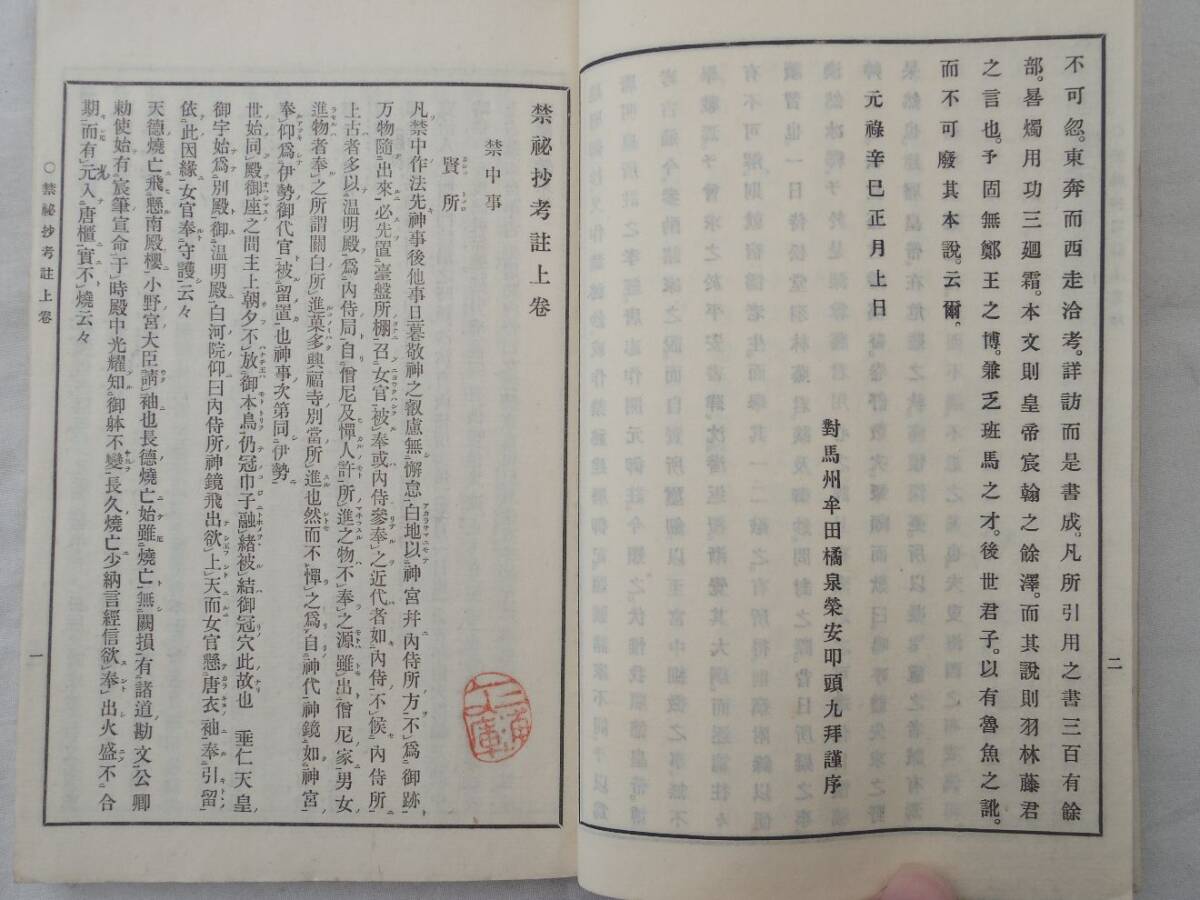 不可忽。東奔而西走洽考。詳訪而是書成。凡所引用之書三百有餘
部。晷燭用功三廻霜。本文則皇帝宸翰之餘澤。而其說則羽林藤君
之言也。予固無鄭王之博。兼乏班馬之才。後世君子。以有魯魚之訛。
而不可廢其本說。云爾。
元祿辛巳正月上日
對馬州牟田橘泉榮安叩頭九拜謹序
二
禁祕抄考註上卷
禁中事
賢所
凡禁中作法先神事後他事旦暮敬神之叡慮無懈怠白地以神宮幷內侍所方不爲御跡
万物隨出來必先置臺盤所棚召女官被奉或內侍參奉之近代者如內侍不候內侍所
上古者多以溫明殿爲內侍局自僧尼及憚人許所進之物不奉之源雖出僧尼家男女
進物者奉之所謂關白所進菓多興福寺別當所進也然而不憚之爲自神代神鏡如神宮
奉仰爲伊勢御代官被留置也神事次第同伊勢
世始同殿御座之間主上朝夕不放御本鳥仍冠巾子融緒被結御冠穴此故也 垂仁天皇
御宇始爲別殿御溫明殿白河院仰曰內侍所神鏡飛出欲上天而女官懸唐衣袖奉引留
依此因緣女官奉守護云々
天德燒亡飛懸南殿櫻小野宮大臣請袖也長德燒亡始雖燒亡無闕損有諸道勘文公卿
勅使始有宸筆宣命于時殿中光耀知御躰不變長久燒亡少納言經信欲奉出火盛不合
期而有光元入唐櫃實不燒云々
○禁祕抄考註上卷
一